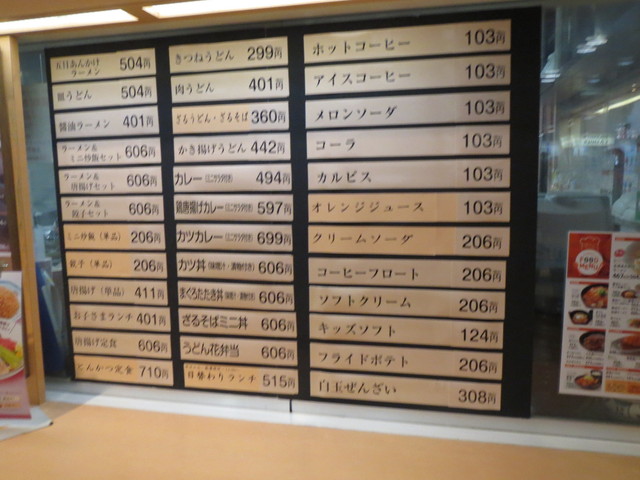 五目あんかけ
ラーメン 504円
皿うどん 504円
醤油ラーメン 401円
ラーメン&
ミニ炒飯セット 606円
ラーメン&
唐揚げセット 606円
ラーメン&
餃子セット 606円
ミニ炒飯(単品) 206円
餃子(単品) 206円
唐揚げ(単品) 411円
お子さまランチ 401円
唐揚げ定食 606円
とんかつ定食 710円
きつねうどん 299円
肉うどん 401円
ざるうどん・ざるそば 360円
かき揚げうどん 442円
カレー(ミニサラダ付き) 494円
鶏唐揚げカレー(ミニサラダ付き) 597円
カツカレー(ミニサラダ付き) 699円
カツ丼(味噌汁・漬物付き) 606円
まぐろたたき丼(味噌汁・漬物付き) 606円
ざるそばミニ丼 606円
うどん花弁当 606円
日替わりランチ 515円
ホットコーヒー 103円
アイスコーヒー 103円
メロンソーダ 103円
コーラ 103円
カルピス 103円
オレンジジュース 103円
クリームソーダ 206円
コーヒーフロート 206円
ソフトクリーム 206円
キッズソフト 124円
フライドポテト 206円
白玉ぜんざい 308円
FOOD
MENU